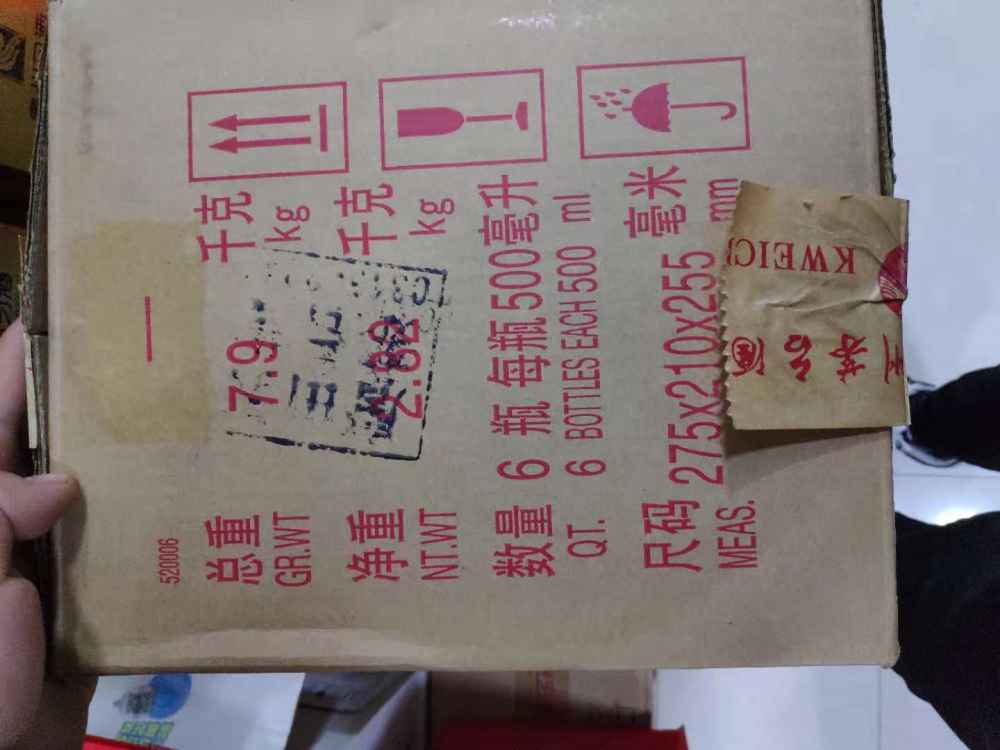 520006
总重 7.9 千克
GR.WT kg
净重 2.82 千克
NT.WT kg
数量 6 瓶 每瓶500毫升
QT. 6 BOTTLES EACH 500 ml
尺码 275x210x255 毫米
MEAS. mm
KWEIC